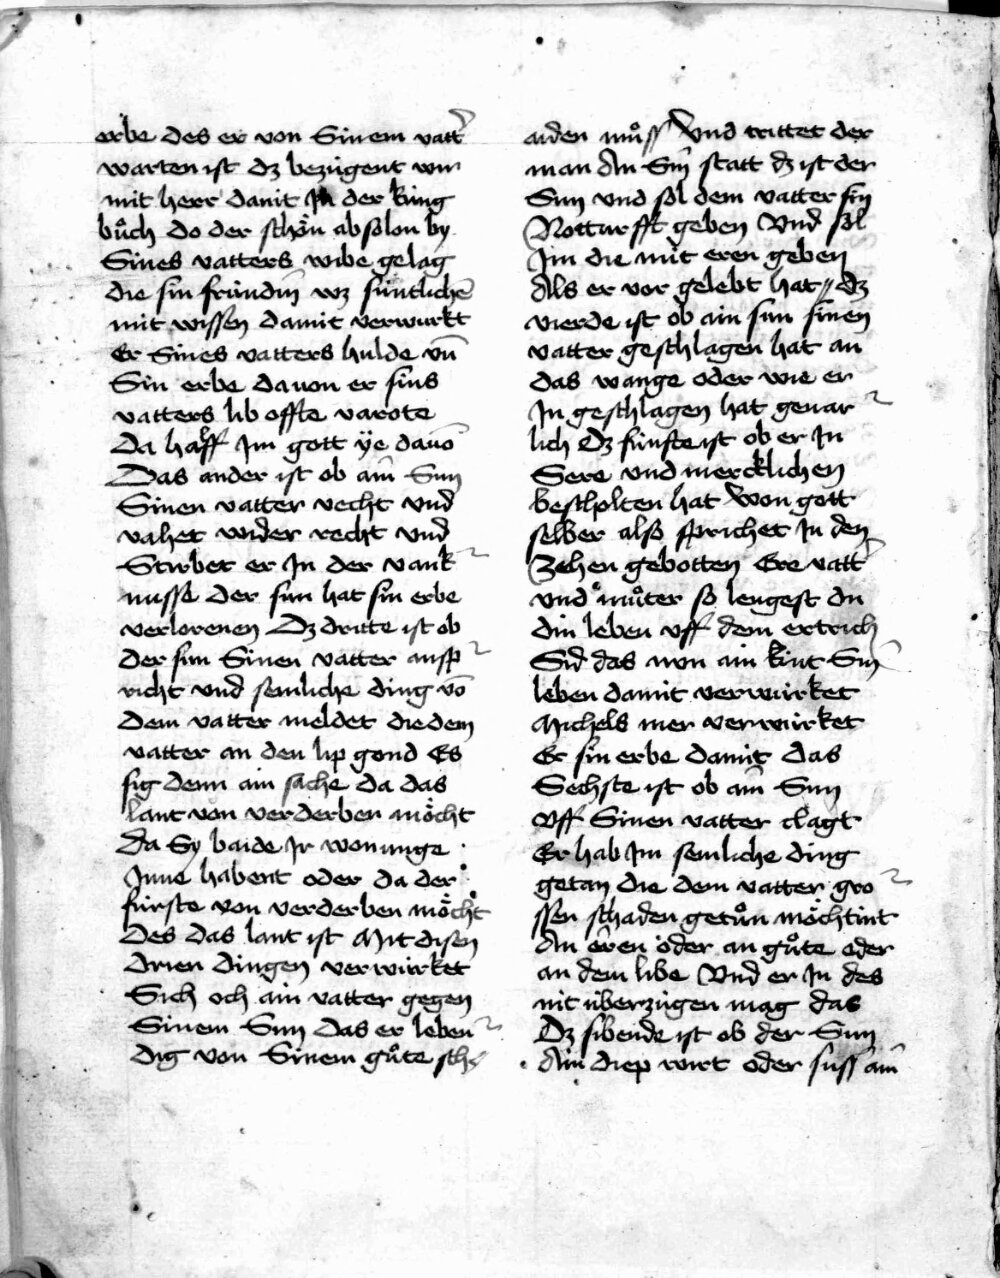 erbe des er von Sinem vatt̄
warten ist dz bezúgent wir
mit herr damit In der kúng
bůch do der schön absolon by
Sines vatters wibe gelag
die sin fründin wz súntlichē
mit wissen damit verwurkt
Er Sines vatters hulde vn̄
Sin erbe dauon er sins
vatters lib offte varote
Da halff Im gott ÿe dauō
Das ander ist ob ain̄ Sun
Sinen vatter vecht vnd
vahet wider recht vnd
Stirbet er In der vank
nusse der sun hat sin erbe
verlorenen Dz dritte ist ob
der sun Sinen vatter ansp
richt vnd semliche ding vō
Dem vatter meldet die dem
vatter an den lip gond Es
sig denn ain sache da das
lant von verderben möcht
Da Sy baide Ir wonunge
Inne habent oder da der
fúrste von verderben möcht
Des das lant ist Mit disen
drien dingen verwúrket
Sich och ain vatter gegen
Sinem Sun das er leben
dig von Sinem gůte sche
aiden můss Vnd trittet der
man An Sin̄ statt dz ist der
Sun vnd sol dem vatter sin
Notturfft geben Vnd sol
Im die mit eren geben
Als er vor gelebt hat dz
vierde ist ob ain sun sinen
vatter geschlagen hat an
das wange oder wie er
In geschlagen hat geuar
lich Dz fúnfte ist ob er In
Sere vnd mercklichen
bescholten hat Won gott
selber also sprichet In den
Zehen gebotten Ere vatt̄
vnd můter so lengest du
din leben vff dem ertrich
Sid das nun ain kint Sin̄
leben damit verwúrket
Michels mer verwúrket
Er sin erbe damit Das
Sechste ist ob ain̄ Sun
vff Sinen vatter clagt
Er hab Im semliche ding
getan die dem vatter gro
ssen schaden getůn möchtint
An eren oder an gůte oder
an dem libe Vnd er In des
nit úberzúgen mag das
Dz sibende ist ob der Sun
Ain diep wirt oder suss ain̄